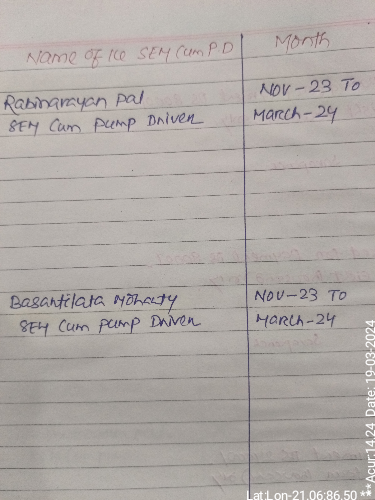 Name of the SEM Cum P.D
Month
Rabinarayan pal
NOV-23 To
SEM Cum pump Driven
March-24
Basantilata Mohanty
NOV-23 To
SEM Cum pump Driven
March-24
Lat:Lon-21.06:86.50 *** Acur:14.24 Date: 19-03-2024